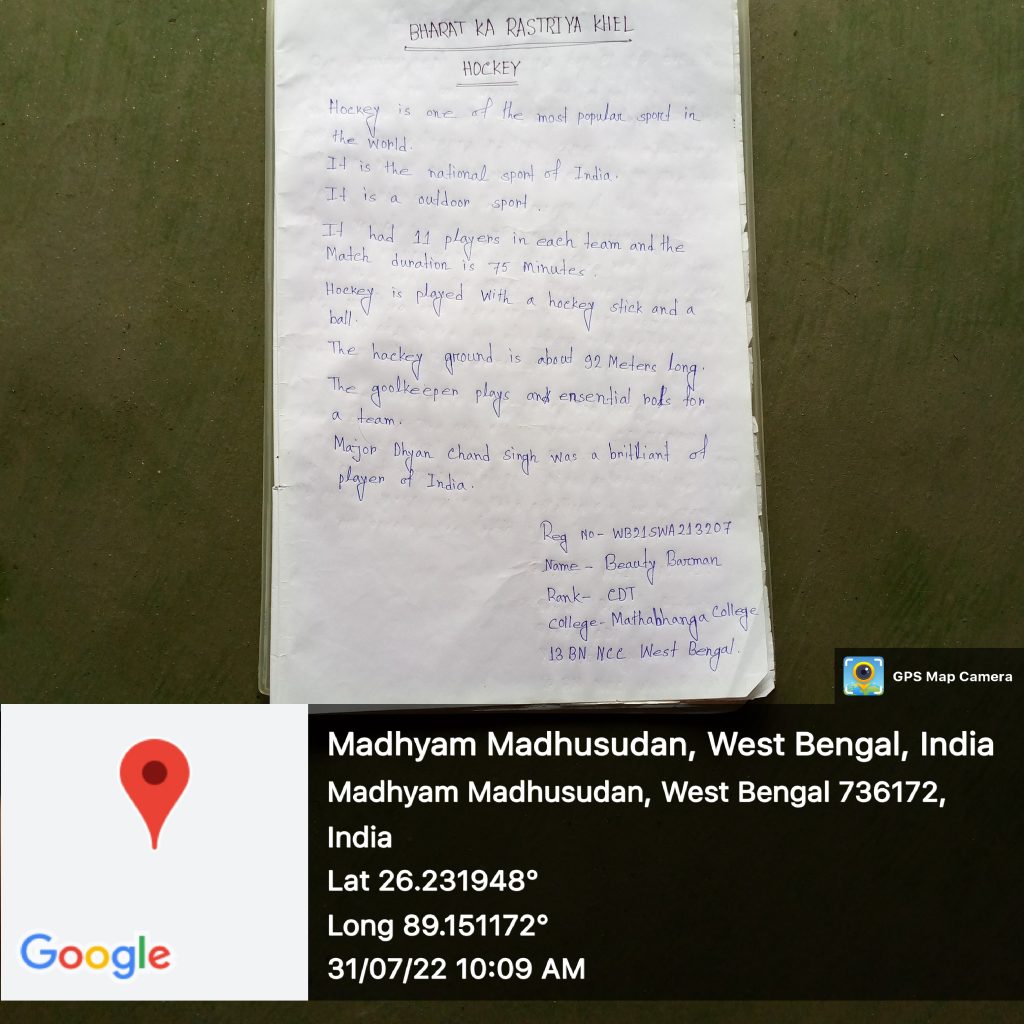 BHARAT KA RASTRIYA KHEL
HOCKEY
Hockey is one of the most popular sport in
the world.
It is the national sport of India.
It is a outdoor sport.
It had 11 players in each team and the
Match duration is 75 Minutes.
Hockey is played with a hockey stick and a
ball.
The hackey ground is about 92 Meters long.
The goolkeeper plays and ensential for
a team.
Major Dhyan Chand singh was a brilliant of
player of India.
Reg No- WB21SWA213207
Name - Beauty Barman
Rank- CDT
college- Mathabhanga College
13 BN NCC West Bengal.
GPS Map Camera
Madhyam Madhusudan, West Bengal, India
Madhyam Madhusudan, West Bengal 736172,
India
Lat 26.231948°
Long 89.151172°
31/07/22 10:09 AM
Google